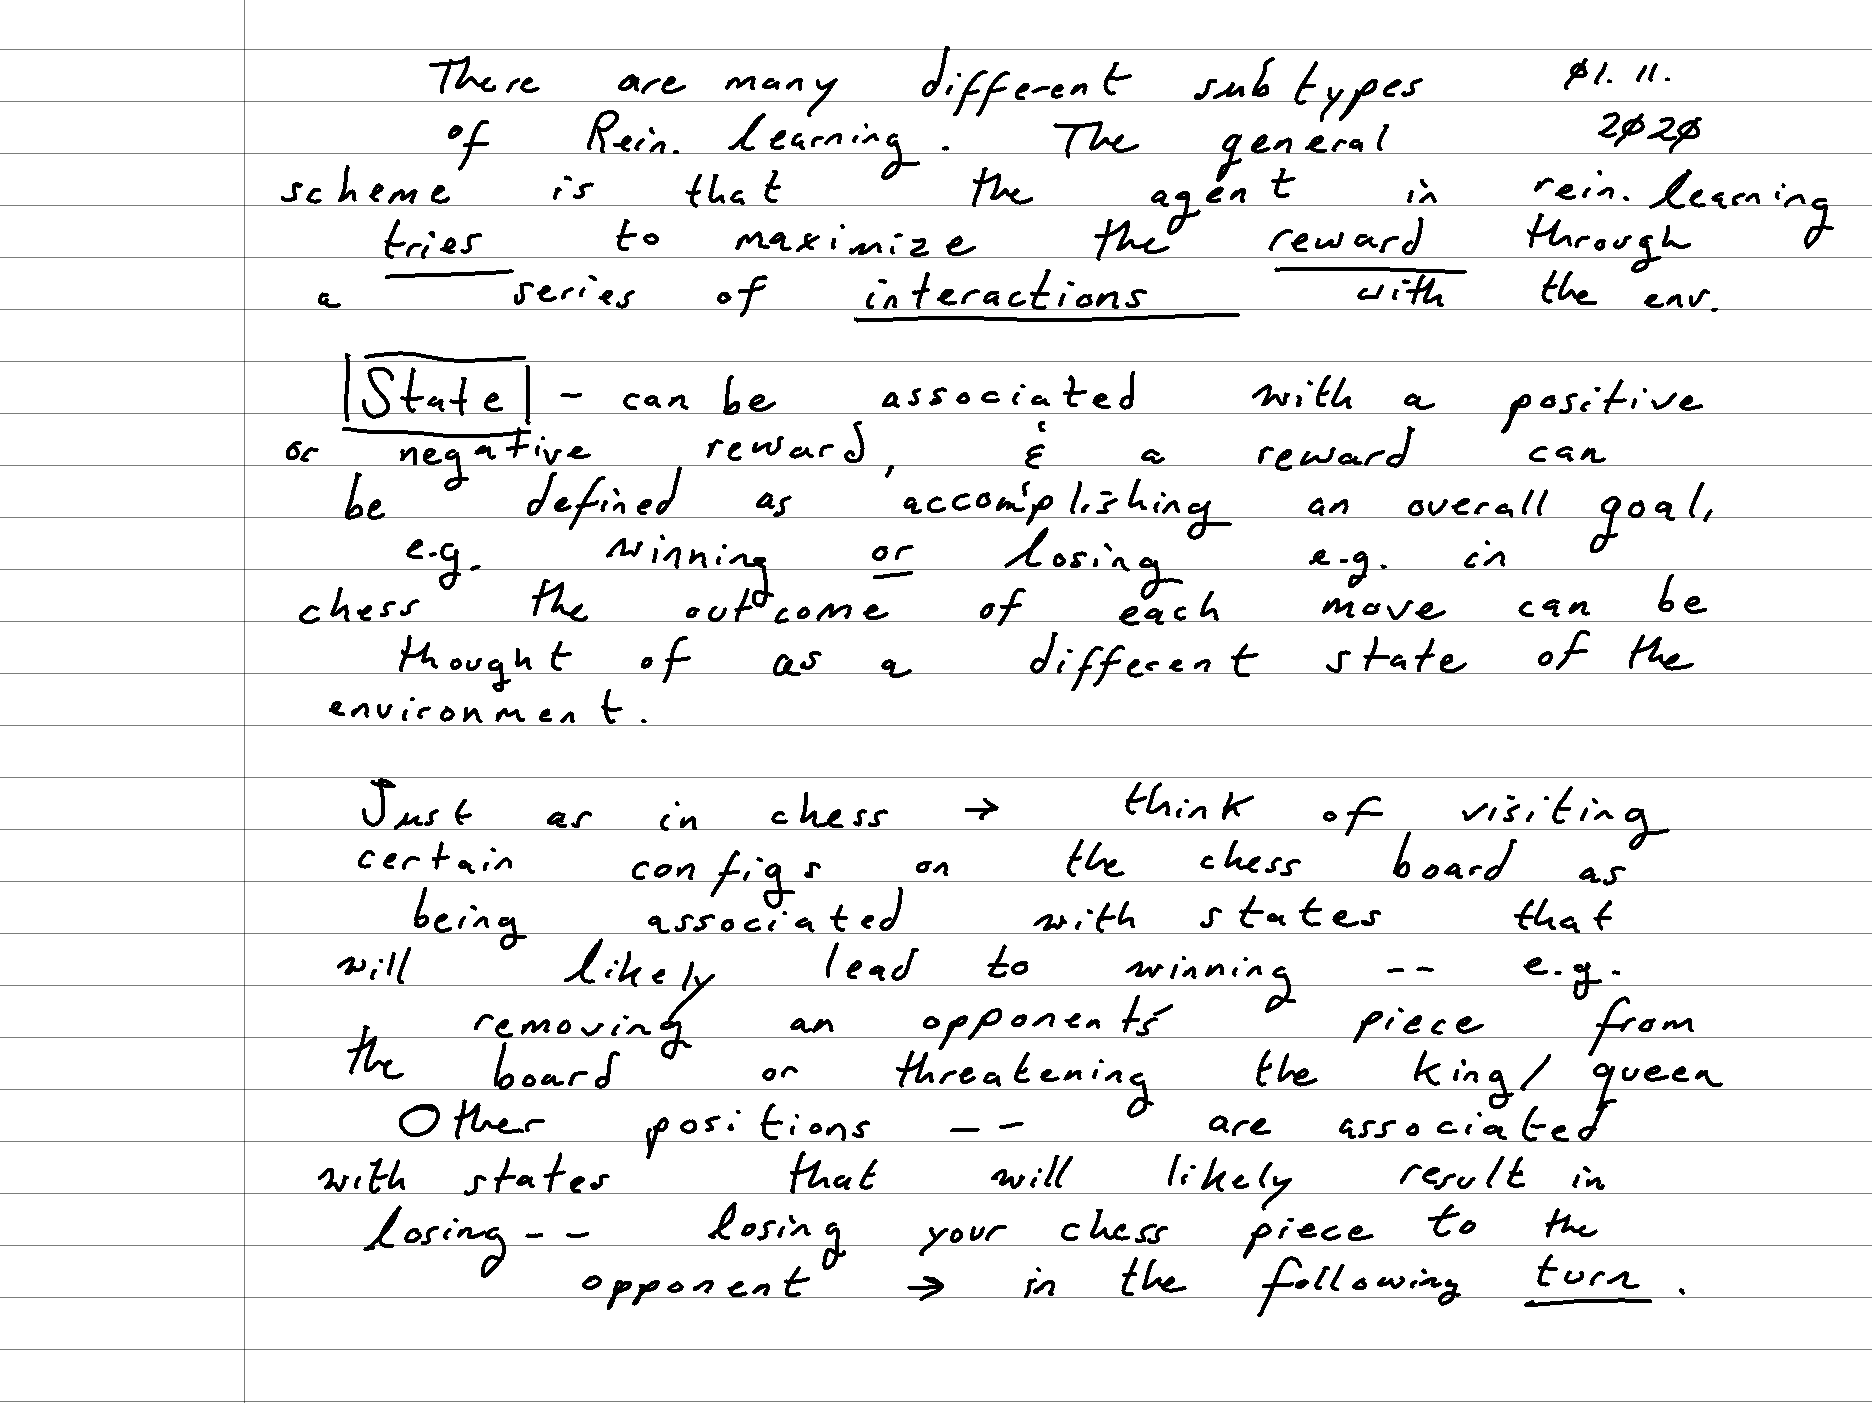 There are many different subtypes ∅1. 11.
of Rein. learning. The general 2∅2∅
scheme is that the agent in rein. learning
tries to maximize the reward through
a series of interactions with the env.
State - can be associated with a positive
or negative reward, & a reward can
be defined as accomplishing an overall goal,
e.g. winning or losing e.g. in
chess the outcome of each move can be
thought of as a different state of the
environment.
Just as in chess → think of visiting
certain configs on the chess board as
being associated with states that
will likely lead to winning -- e.g.
removing an opponent's piece from
the board or threatening the king/queen
Other positions -- are associated
with states that will likely result in
losing -- losing your chess piece to the
opponent → in the following turn.